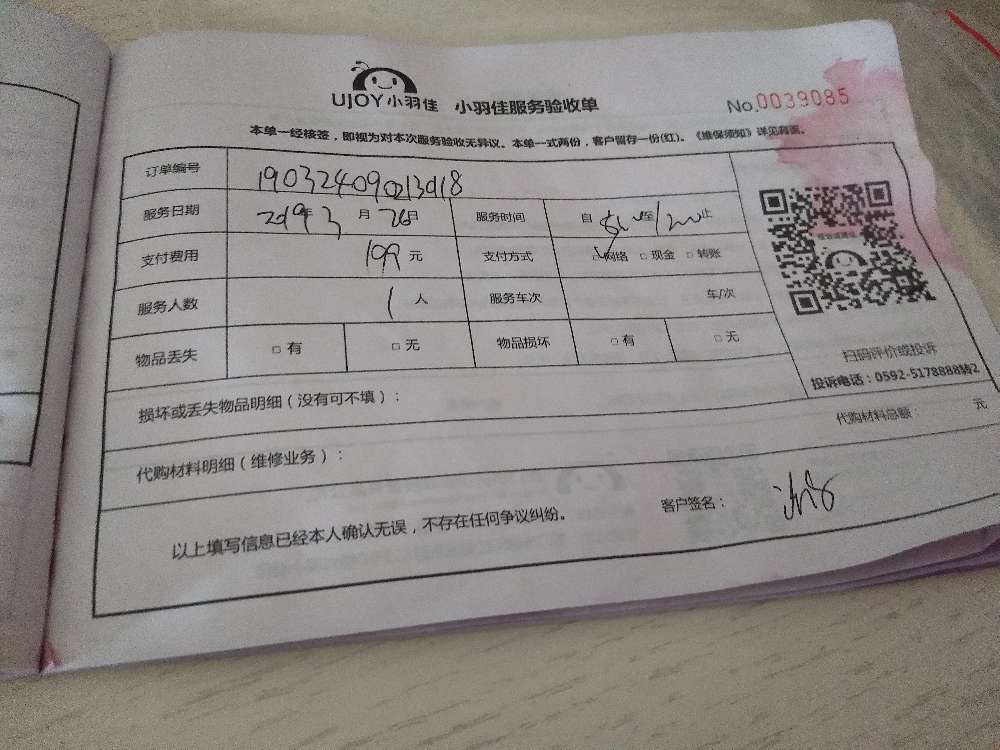 UJOY小羽佳 小羽佳服务验收单 No.0039085
本单一经核签，即视为对本次服务验收无异议。本单一式两份，客户留存一份(红)。《维保须知》详见背面。
订单编号 190324090213918
服务日期 2019年3月26日 服务时间 自 至 止
支付费用 199元 支付方式 □网络 □现金 □转账
服务人数 1人 服务车次 车/次
物品丢失 □有 □无 物品损坏 □有 □无
扫码评价或投诉
投诉电话：0592-5178888转2
损坏或丢失物品明细（没有可不填）：
代购材料明细（维修业务）： 代购材料总额： 元
以上填写信息已经本人确认无误，不存在任何争议纠纷。 客户签名：